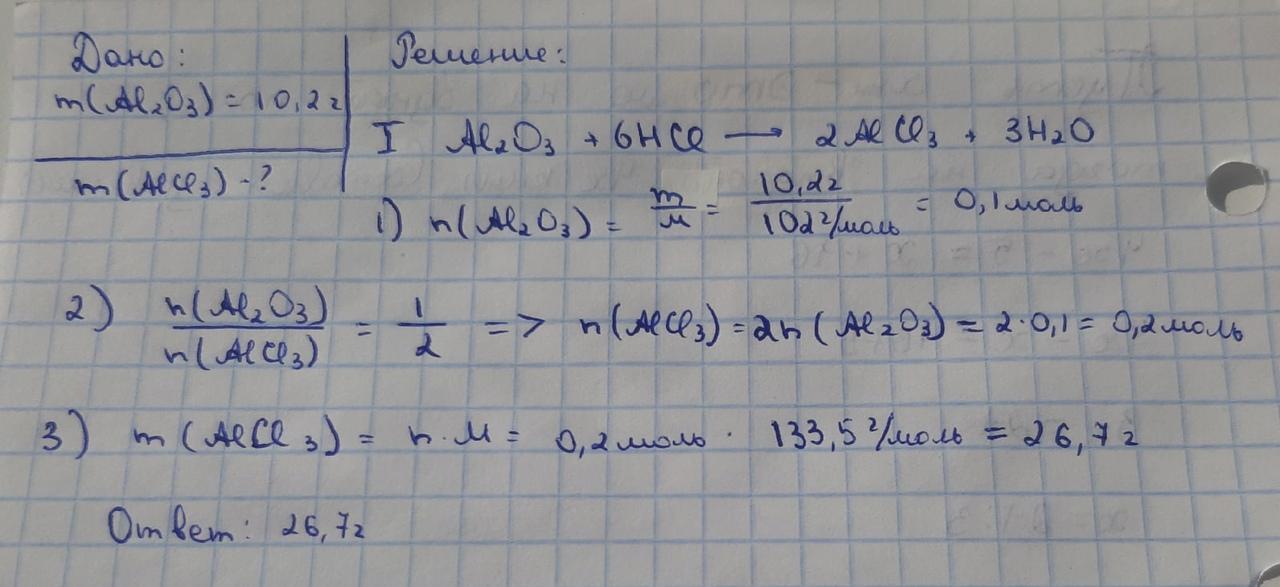 Дано:
m(Al₂O₃) = 10,2г
m(AlCl₃) - ?
Решение:
I Al₂O₃ + 6HCl ⟶ 2AlCl₃ + 3H₂O
1) n(Al₂O₃) = m/M = 10,2г/102г/моль = 0,1моль
2) n(Al₂O₃)/n(AlCl₃) = 1/2 => n(AlCl₃) = 2n(Al₂O₃) = 2·0,1 = 0,2моль
3) m(AlCl₃) = n·M = 0,2моль · 133,5г/моль = 26,7г
Ответ: 26,7г